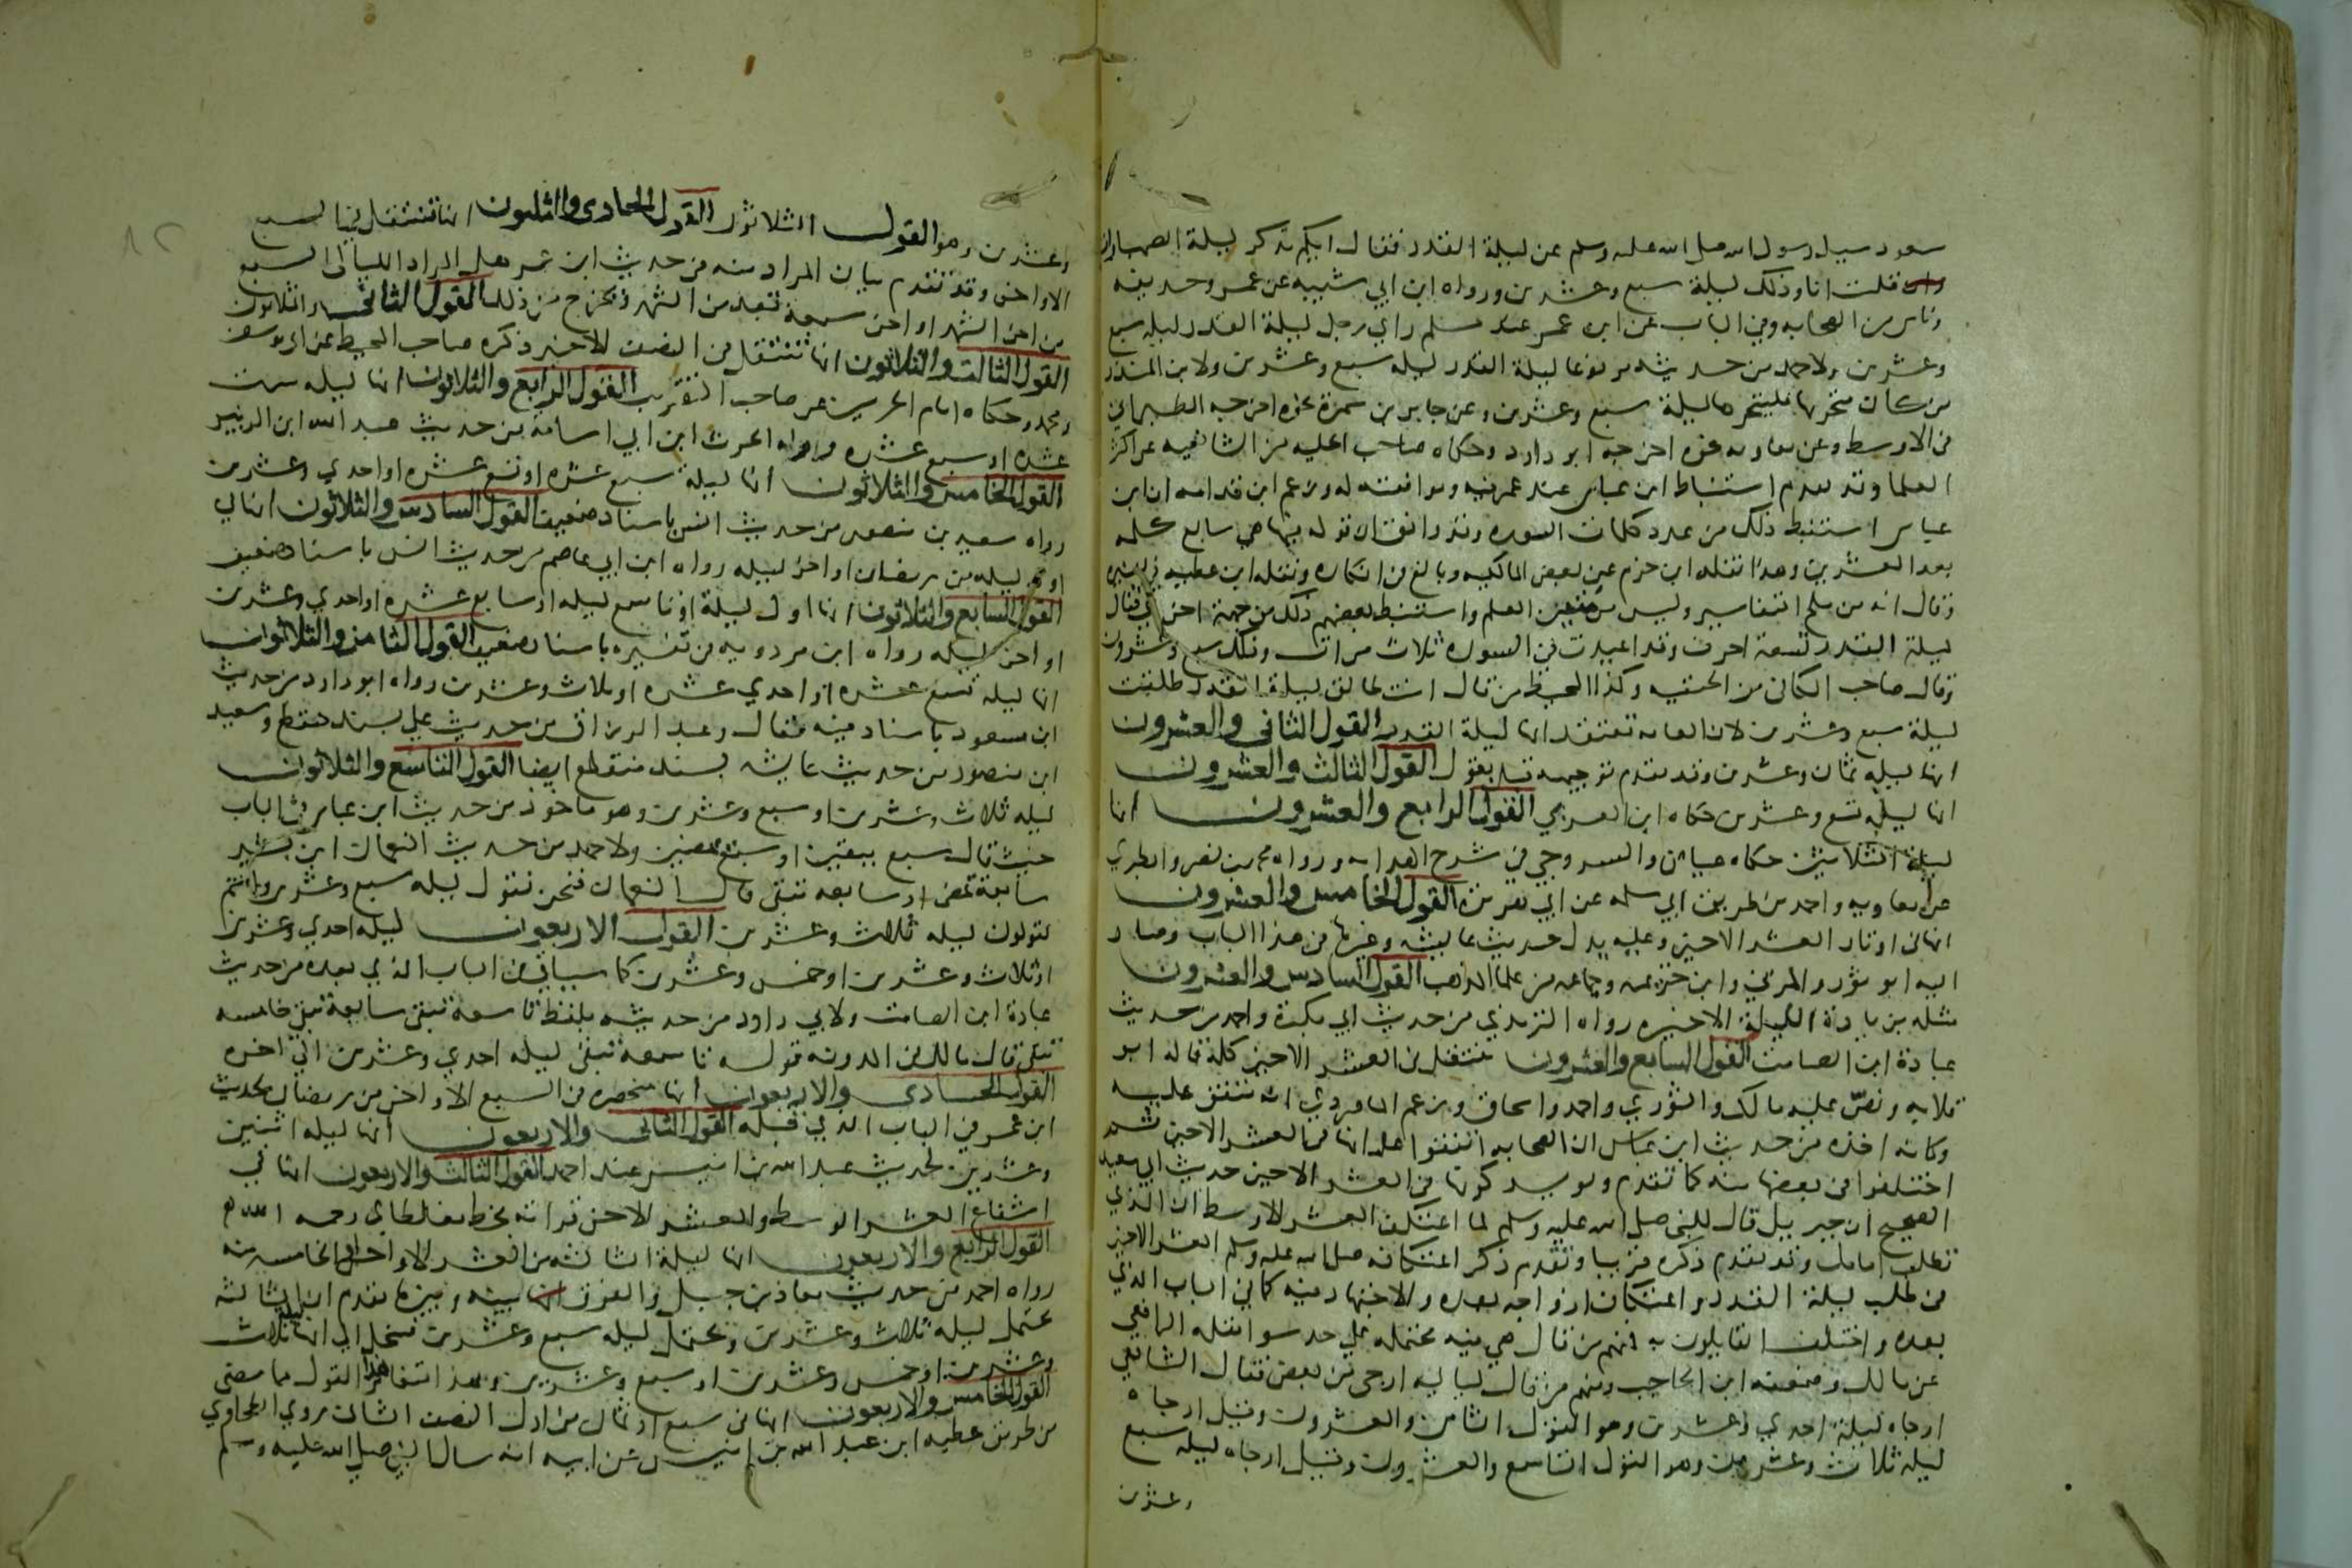 سعود سيل رسول الله صلى الله عليه وسلم عن ليلة القدر فقال ايكم يذكر ليلة الصهباوات
قلت انا وذلك ليلة سبع وعشرين ورواه ابن ابي شيبه عن عمر وحذيفه
وناس من الصحابه وفي الباب عن ابن عمر عند مسلم راي رجل ليلة القدر ليله سبع
وعشرين ولاحمد من حديثه مرفوعا ليلة القدر ليله سبع وعشرين ولابن المنذر
من كان متحريها فليتحرها ليلة سبع وعشرين وعن جابر بن سمرة نحوه اخرجه الطبراني
في الاوسط وعن معاويه نحوه اخرجه ابو داود وحكاه صاحب الحليه من الشافعيه عن اكثر
العلما وقد تقدم استنباط ابن عباس عند عمر فيه وموافقته له وزعم ابن قدامه ان ابن
عباس استنبط ذلك من عدد كلمات السوره وقد وافق ان قوله فيها هي سابع كلمه
بعد العشرين وهذا نقله ابن حزم عن بعض المالكيه وبالغ في انكاره ونقله ابن عطيه في تفسيره
وقال انه من ملح التفاسير وليس من متين العلم واستنبط بعضهم ذلك من جهة اخري فقال
ليلة القدر تسعة احرف وقد اعيدت في السورة ثلاث مرات وذلك سبع وعشرون
وقال صاحب الكافي من الحنفيه وكذا المحيط من قال انت طالق ليلة القدر طلقت
ليلة سبع وعشرين لان العامه تعتقد انها ليلة القدر القول الثاني والعشرون
انها ليله ثمان وعشرين وقد تقدم توجيهه قبل بقول القول الثالث والعشرون
انها ليلة تسع وعشرين حكاه ابن العربي القول الرابع والعشرون انها
ليلة الثلاثين حكاه عياض والسروجي في شرح الهدايه ورواه محمد بن نصر والطبري
عن معاويه واحمد من طريق ابي سلمه عن ابي هريرة القول الخامس والعشرون
انها في اوتار العشر الاخير وعليه يدل حديث عايشه وغيرها في هذا الباب وصار
اليه ابو ثور والمزني وابن خزيمه وجماعه من علما المذاهب القول السادس والعشرون
مثله بزيادة الليلة الاخيره رواه الترمذي من حديث ابي بكرة واحمد من حديث
عبادة ابن الصامت القول السابع والعشرون تنتقل في العشر الاخير كله قاله ابو
قلابه ونصّ عليه مالك والثوري واحمد واسحاق وزعم الماوردي انه متفق عليه
وكانه اخذه من حديث ابن عباس ان الصحابه اتفقوا على انها في العشر الاخير ثم
اختلفوا في بعضها منه كما تقدم ويويد كونها في العشر الاخير حديث ابي سعيد
الصحيح ان جبريل قال للنبي صلى الله عليه وسلم لما اعتكف العشر الاوسط ان الذي
تطلب امامك وقد تقدم ذكره قريبا وتقدم ذكر اعتكافه صلى الله عليه وسلم العشر الاخير
في طلب ليلة القدر واعتكاف ازواجه بعده والاجتهاد فيه كما في الباب الذي
بعده واختلف القايلون به فمنهم من قال هي فيه محتمله على حد سوا نقله الرافعي
عن مالك وضعفه ابن الحاجب ومنهم من قال لياليه ارجى من بعض فقال الشافعي
ارجاه ليلة احدي وعشرين وهو القول الثامن والعشرون وقيل ارجاه
ليله ثلاث وعشرين وهو القول التاسع والعشرون وقيل ارجاه ليله سبع
وعشرين
وعشرين وهو القول الثلاثون القول الحادى والثلثون انها تنتقل في السبع
الاواخر وقد تقدم بيان المراد منه من حديث ابن عمر هل المراد الليالى السبع
من اخر الشهر او اخر سبعة تعد من الشهر ويخرج من ذلك القول الثاني والثلاثون
القول الثالث والثلاثون انها تنتقل في النصف الاخير ذكره صاحب المحيط عن ابي يوسف
ومحمد وحكاه امام الحرمين عن صاحب التقريب القول الرابع والثلاثون انها ليله ست
عشره او سبع عشره رواه الحرث ابن ابي اسامه من حديث عبد الله ابن الزبير
القول الخامس والثلاثون انها ليلة سبع عشره او تسع عشره او احدي وعشرين
رواه سعيد بن منصور من حديث انس باسناد ضعيف القول السادس والثلاثون انها لي
اول ليله من رمضان او اخر ليله رواه ابن ابي عاصم من حديث انس باسناد ضعيف
القول السابع والثلاثون انها اول ليلة او تاسع ليله او سابع عشره او احدي وعشرين
او اخر ليله رواه ابن مردويه في تفسيره باسناد ضعيف القول الثامن والثلاثون
انها ليله تسع عشره او احدي عشره او ثلاث وعشرين رواه ابو داود من حديث
ابن مسعود باسناد فيه مقال وعبد الرزاق من حديث علي بسند منقطع وسعيد
ابن منصور من حديث عايشه بسند منقطع ايضا القول التاسع والثلاثون
ليله ثلاث وعشرين او سبع وعشرين وهو ماخوذ من حديث ابن عباس في الباب
حيث قال سبع يبقين او سبع يمضين ولاحمد من حديث النعمان ابن بشير
سابعة تمضي او سابعه تبقى قال النعمان فنحن نقول ليله سبع وعشرين وانتم
تقولون ليله ثلاث وعشرين القول الاربعون ليله احدي وعشرين
او ثلاث وعشرين او خمس وعشرين كما سياتي في الباب الذي بعده من حديث
عبادة ابن الصامت ولابي داود من حديثه بلفظ تاسعة تبقى سابعة تبقى خامسه
تبقى قال مالك في المدونه قوله تاسعة تبقى ليله احدي وعشرين الى اخره
القول الحادى والاربعون انها منحصره في السبع الاواخر من رمضان لحديث
ابن عمر في الباب الذي قبله القول الثاني والاربعون انها ليله اثنين
وعشرين لحديث عبد الله بن انيس عند احمد القول الثالث والاربعون انها في
اشفاع العشر الوسط والعشر الاخر قراته بخط مغلطاي رحمه الله
القول الرابع والاربعون انها ليلة الثالثه من العشر الاواخر او الخامسه منه
رواه احمد من حديث معاذ بن جبل والفرق بينه وبين ما تقدم ان الثالثه
تحتمل ليله ثلاث وعشرين وتحتمل ليله سبع وعشرين فتنحل الى انها ليلة ثلاث
وعشرين او خمس وعشرين او سبع وعشرين وبهذا استفاد هذا القول مما مضى
القول الخامس والاربعون انها في سبع او ثمان من اول النصف الثاني روي الطحاوي
من طريق عطيه ابن عبد الله بن انيس عن ابيه انه سال النبي صلى الله عليه وسلم